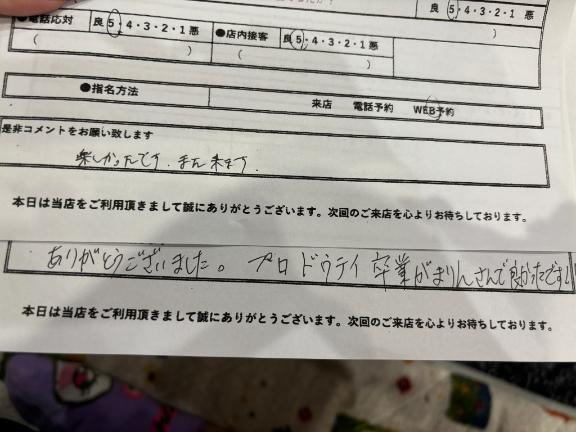 良 5・4・3・2・1 悪
)
●電話応対 良 5・4・3・2・1 悪 ●店内接客 良 5・4・3・2・1 悪
( ) ( )
●指名方法 来店 電話予約 WEB予約
是非コメントをお願い致します
楽しかったです. また来ます.
本日は当店をご利用頂きまして誠にありがとうございます。次回のご来店を心よりお待ちしております。
ありがとうございました。 プロドウテイ卒業がまりんさんで良かったです!!
本日は当店をご利用頂きまして誠にありがとうございます。次回のご来店を心よりお待ちしております。